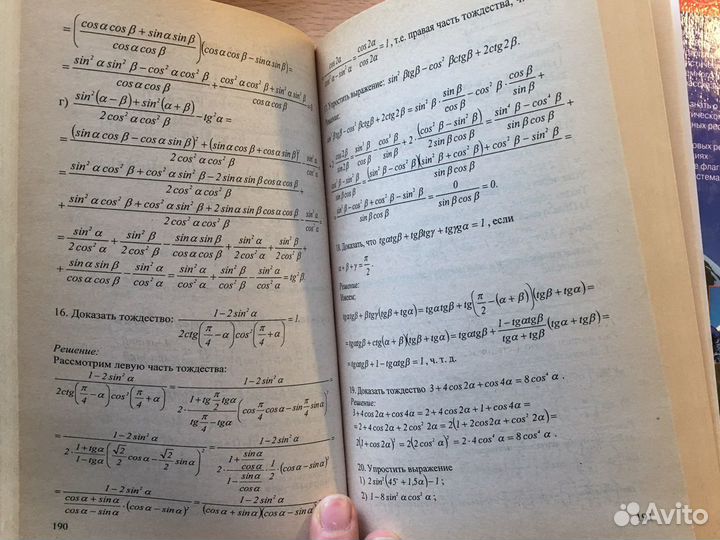 =((cos α cos β + sin α sin β)/(cos α cos β))(cos α cos β − sin α sin β)=
=(sin² α sin² β − cos² α cos² β)/(cos α cos β) + (cos² α cos² β + sin² α sin² β)/(cos α cos β)
г) (sin²(α − β) + sin²(α + β))/(2 cos² α cos² β) − tg² α =
=((sin α cos β − cos α sin β)² + (sin α cos β + cos α sin β)²)/(2 cos² α cos² β) − sin² α/cos² α
=(sin² α cos² β + cos² α sin² β − 2 sin α sin β cos α cos β)/(2 cos² α cos² β) +
+(sin² α cos² β + cos² α sin² β + 2 sin α sin β cos α cos β)/(2 cos² α cos² β) − sin² α/cos² α =
=sin² α/(2 cos² α) + sin² β/(2 cos² β) − (sin α sin β)/(cos α cos β) + sin² α/(2 cos² α) + sin² β/(2 cos² β) +
+(sin α sin β)/(cos α cos β) − sin² α/cos² α = sin² α/cos² α + sin² β/cos² β − sin² α/cos² α = tg² β.
16. Доказать тождество: (1 − 2 sin² α)/(2ctg(π/4 − α)cos²(π/4 + α)) = 1.
Решение:
Рассмотрим левую часть тождества:
(1 − 2 sin² α)/(2ctg(π/4 − α)cos²(π/4 + α)) = (1 − 2 sin² α)/(2 · (1 + tg π/4 tgα)/(tg π/4 − tgα) (cos π/4 cos α − sin π/4 sin α)²) =
=(1 − 2 sin² α)/(2 · (1 + tgα)/(1 − tgα) (√2/2 cos α − √2/2 sin α)²) = (1 − 2 sin² α)/(2 · (1 + sin α/cos α)/(1 − sin α/cos α) · 1/2 · (cos α − sin α)²) =
=(1 − 2 sin² α)/((cos α + sin α)/(cos α − sin α) · (cos α − sin α)²) = (1 − 2 sin² α)/((cos α + sin α)(cos α − sin α)) =
190
cos 2α = cos 2α/cos 2α = 1, т.е. правая часть тождества,
Упростить выражение: sin² βtgβ − cos² βctgβ + 2ctg 2β.
Решение:
sin² βtgβ − cos² βctgβ + 2ctg 2β = sin² β · sin β/cos β − cos² β · cos β/sin β +
+2 cos 2β/sin 2β = sin³ β/cos β − cos³ β/sin β + 2 · (cos² β − sin² β)/(2 sin β cos β) = (sin⁴ β − cos⁴ β)/(sin β cos β) +
(cos² β − sin² β)/(sin β cos β) = ((sin² β − cos² β)(sin² β + cos² β) + cos² β − sin² β)/(sin β cos β) =
(sin² β − cos² β + cos² β − sin² β)/(sin β cos β) = 0/(sin β cos β) = 0.
18. Доказать, что tgαtgβ + tgβtgγ + tgγtgα = 1, если
α + β + γ = π/2.
Решение:
Имеем:
tgαtgβ + tgγ(tgβ + tgα) = tgαtgβ + tg(π/2 − (α + β))(tgβ + tgα) =
=tgαtgβ + ctg(α + β)(tgβ + tgα) = tgαtgβ + (1 − tgαtgβ)/(tgα + tgβ) (tgα + tgβ) =
=tgαtgβ + 1 − tgαtgβ = 1, ч. т. д.
19. Доказать тождество 3 + 4 cos 2α + cos 4α = 8 cos⁴ α .
Решение:
3 + 4 cos 2α + cos 4α = 2 + 4 cos 2α + 1 + cos 4α =
=2 + 4 cos 2α + 2 cos² 2α = 2(1 + 2 cos 2α + cos² 2α) =
2(1 + cos 2α)² = 2(2 cos² α)² = 2 · 4 cos⁴ α = 8 cos⁴ α .
20. Упростить выражение
1) 2 sin²(45° + 1,5α) − 1 ;
2) 1 − 8 sin² α cos² α ;
Avito